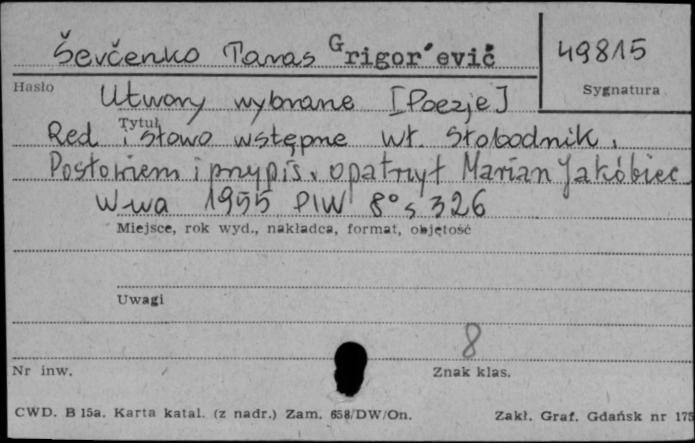 Ševčenko Taras Grigor'evič
49815
Hasło
Sygnatura
Utwory wybrane [Poezje]
Tytuł
Red i słowo wstępne Wł. Słobodnik,
Posłowiem i przypis. opatrzył Marian Jakóbiec
W-wa 1955 PIW 8° s 326
Miejsce, rok wyd., nakładca, format, objętość
Uwagi
8
Nr inw.
Znak klas.
CWD. B 15a. Karta katal. (z nadr.) Zam. 658/DW/On.
Zakł. Graf. Gdańsk nr 175